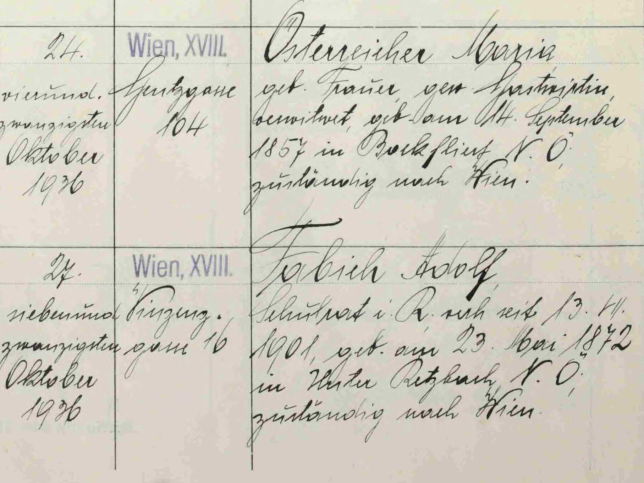 24.
vierund.
zwanzigsten
Oktober
1936
Wien, XVIII.
Gentzgasse
104
Österreicher Maria
geb. Frauer, gew. Gastwirtin,
verwitwet, geb. am 14. September
1857 in Bockfließ, N. Ö.,
zuständig nach Wien.
27.
siebenund
zwanzigsten
Oktober
1936
Wien, XVIII.
Vinzenz-
gasse 16
Fabich Adolf,
Schulrat i. R. verh. seit 13. VII.
1901, geb. am 23. Mai 1872
in Unter Retzbach, N. Ö.,
zuständig nach Wien.